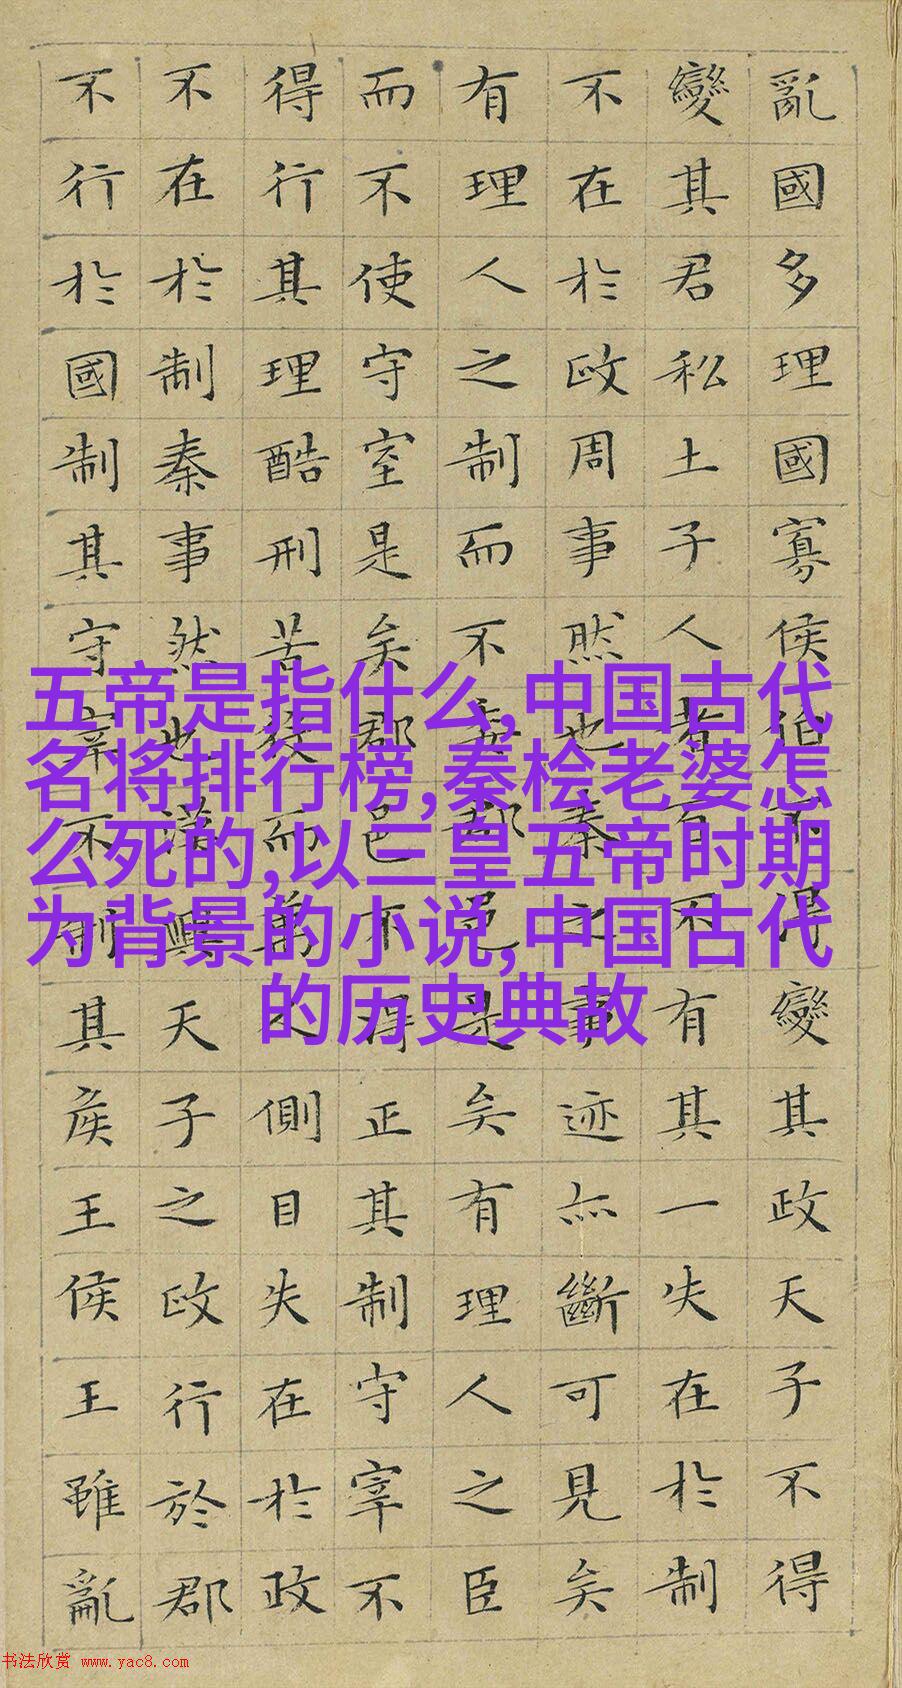 亂國多理國寡侯伯不得變其政天子不得
變其君私土子人者百不有其一失在於制
不在於政周事然也秦之事迹亦斷可見矣
有理人之制而不委郡邑是矣有理人之臣
而不使守宰是矣郡邑不得正其制守宰不
得行其理酷刑苦役而萬人側目失在於政
不在於制秦事然也漢興天子之政行於郡
不行於國制其守宰不制其侯王侯王雖亂
五帝是指什么,中国古代
名将排行榜,秦桧老婆怎
么死的,以三皇五帝时期
为背景的小说,中国古代
的历史典故
书法欣赏 www.yac8.com